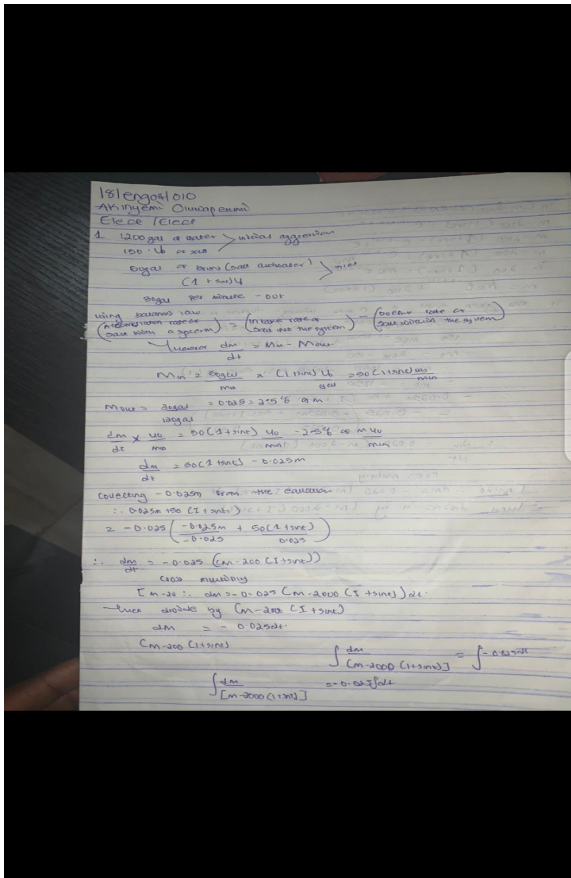 18/eng04/010
Akinyemi Oluwapemi
Elece/Elect
1. 1200gal of water > initial
150 lb
50gal of brine
(1 + sint) lb
50gal per minute - out
Using balance law
(Accumulation rate of salt within a system) = (Intake rate of salt into the system) - (Outflow rate of salt within the system)
However dm/dt = Min - Mout
Min = 50gal/min × (1+sint) lb/gal = 50(1+sint) lb/min
Mout = = 0.025 = 2.5% of m
dm/dt × lb/min = 50(1+sint) lb/min - 2.5% of m lb/min
dm/dt = 50(1+sint) - 0.025m
Collecting - 0.025m from the equation
∴ 0.025m
= -0.025 (-0.025m/-0.025 + 50(1+sint)/0.025)
∴ dm/dt = -0.025 (m-200(1+sint))
Cross multiplying
∴ dm = -0.025 (m-2000(1+sint))dt
divide by (m-200(1+sint)
dm = -0.025dt
(m-200(1+sint)
∫ dm/[m-2000(1+sint)] = ∫-0.025dt
∫ dm/[m-2000(1+sint)] = -0.025∫dt